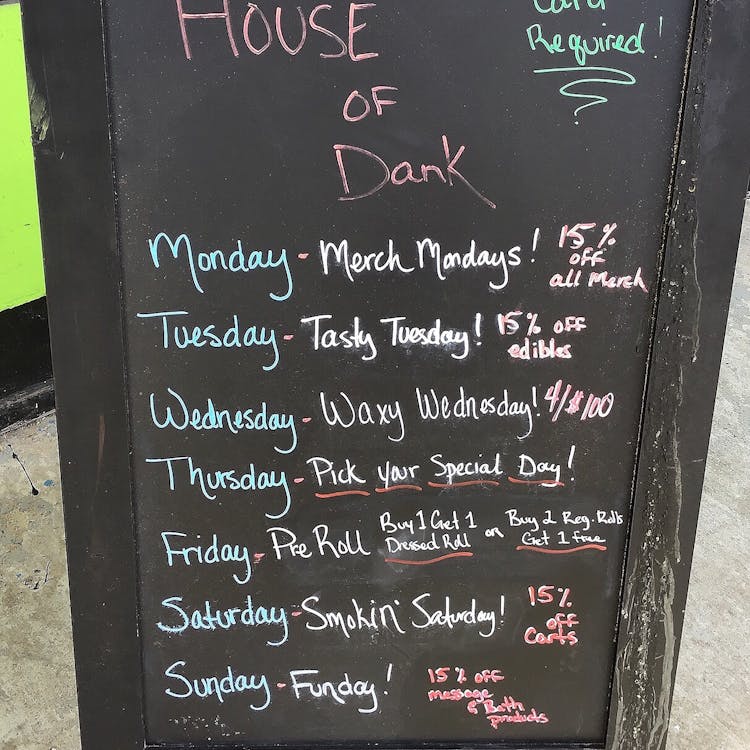 HOUSE
OF
Dank
Card
Required!
Monday - Merch Mondays! 15% off all Merch
Tuesday - Tasty Tuesday! 15% off edibles
Wednesday - Waxy Wednesday! 4/$100
Thursday - Pick your Special Day!
Friday - Pre Roll Buy 1 Get 1 Dressed Roll or Buy 2 Reg. Rolls Get 1 free
Saturday - Smokin' Saturday! 15% off Carts
Sunday - Funday! 15% off message & Bath products